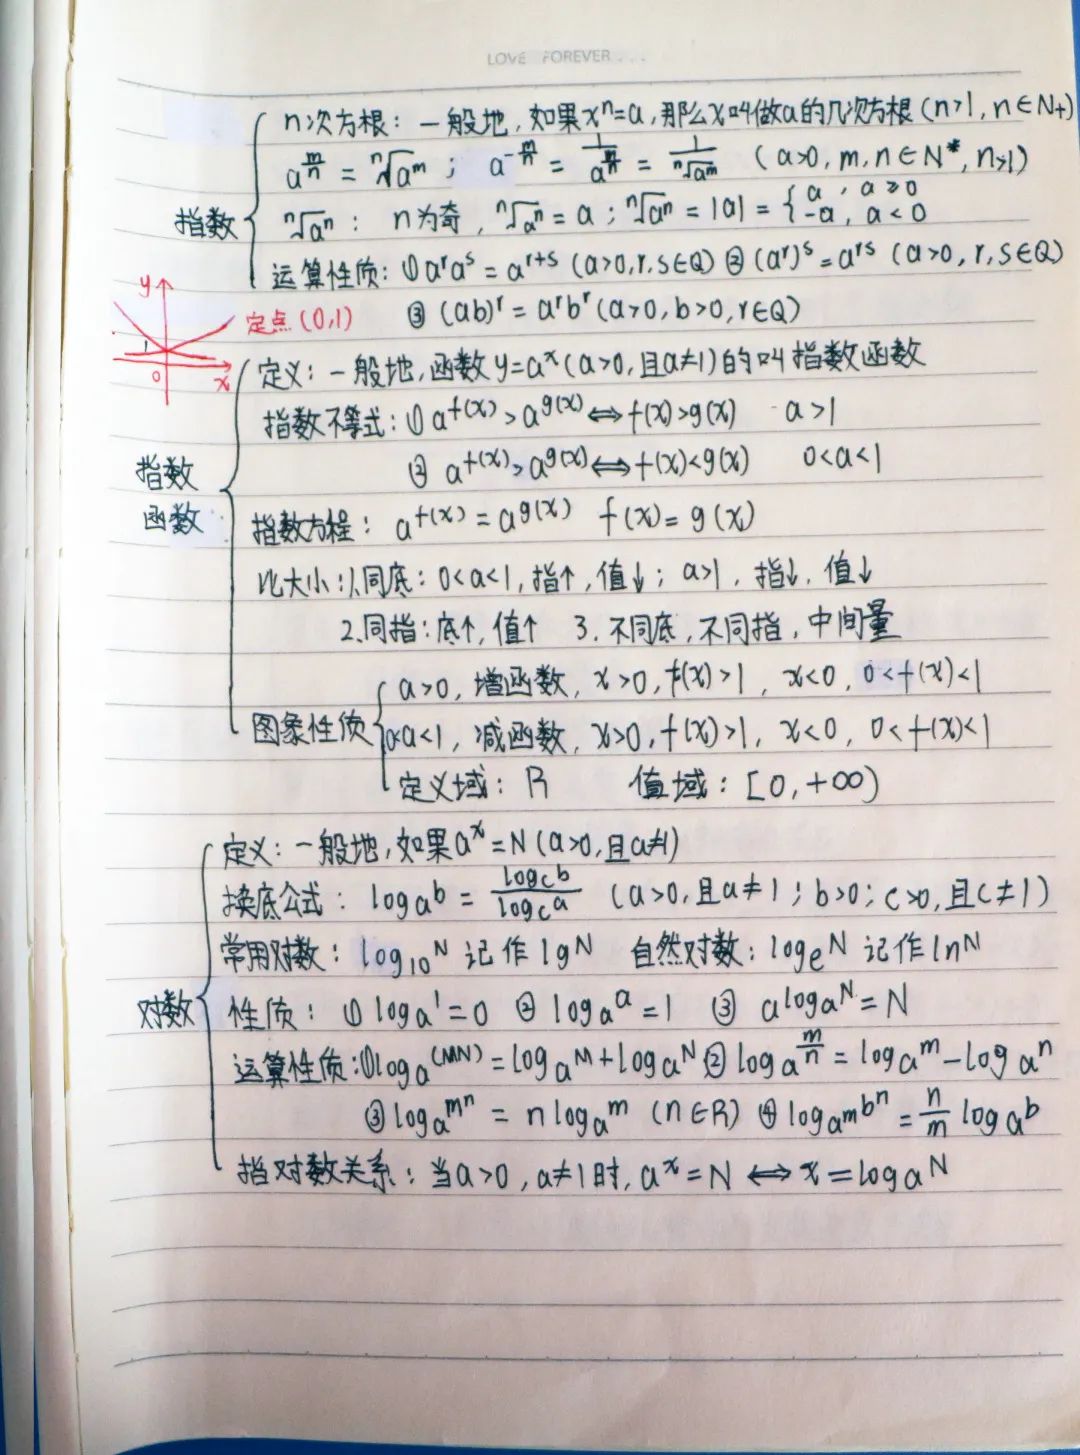 LOVE FOREVER...
n次方根：一般地，如果xⁿ=a，那么x叫做a的几次方根（n>1，n∈N+）
a^(m/n) = ⁿ√a^m ； a^(-m/n) = 1/a^(m/n) = 1/ⁿ√a^m （a>0，m，n∈N*，n>1）
指数 ⁿ√aⁿ： n为奇，ⁿ√aⁿ = a；ⁿ√aⁿ = |a| = { a，a≥0
-a，a<0
运算性质：①a^r a^s = a^(r+s)（a>0，r，s∈Q）②（a^r）^s = a^(rs)（a>0，r，s∈Q）
③（ab）^r = a^r b^r（a>0，b>0，r∈Q）
y 定点（0,1）
1
0 x
定义：一般地，函数y=a^x（a>0，且a≠1）的叫指数函数
指数不等式：①a^f(x)>a^g(x)⇔f(x)>g(x) a>1
②a^f(x)>a^g(x)⇔f(x)<g(x) 0<a<1
指数
函数
指数方程：a^f(x) = a^g(x) f(x)=g(x)
比大小：1.同底：0<a<1，指↑，值↓；a>1，指↓，值↓
2.同指：底↑，值↑ 3.不同底，不同指，中间量
a>0，增函数，x>0，f(x)>1，x<0，0<f(x)<1
图象性质 0<a<1，减函数，x>0，f(x)>1，x<0，0<f(x)<1
定义域：R 值域：[0，+∞)
定义：一般地，如果a^x=N（a>0，且a≠1）
换底公式：log_a b = log_c b / log_c a （a>0，且a≠1；b>0；c>0，且c≠1）
常用对数：log₁₀N 记作lgN 自然对数：log_e N 记作lnN
对数 性质：①log_a 1=0 ②log_a a=1 ③a^(log_a N)=N
运算性质：①log_a (MN)=log_a M+log_a N ②log_a m/n = log_a m-log_a n
③log_a mⁿ = nlog_a m（n∈R）④log_(a^m) bⁿ = n/m log_a b
指对数关系：当a>0，a≠1时，a^x=N⇔x=log_a N